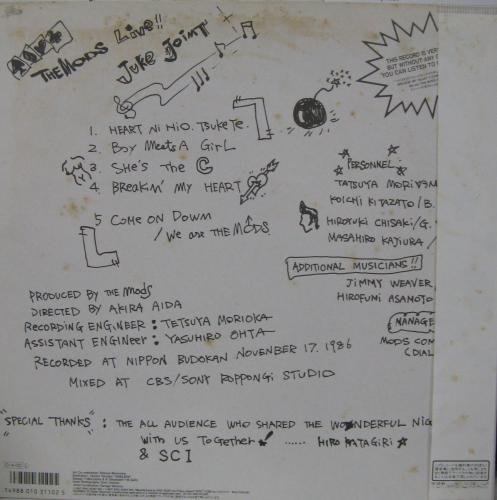 THE MODS Live!!
Juke Joint
THIS RECORD IS VER
BUT WITHOUT ANY
YOU CAN LISTEN TO
1. HEART NI HIO. TSUKETE.
2. Boy Meets A GIRL
3. SHE'S THE C
4. BREAKIN' MY HEART
5 COME ON DOWN
/ We are THE MODS
PERSONNEL
TATSUYA MORIYAM
KOICHI KITAZATO / B.
HIROYUKI CHISAKI / G.
MASAHIRO KAJIURA /
ADDITIONAL MUSICIANS!!
JIMMY WEAVER
HIROFUMI ASAMOTO
MANAGE
MODS COM
(DIAL
PRODUCED BY THE MODS
DIRECTED BY AKIRA AIDA
RECORDING ENGINEER : TETSUYA MORIOKA
ASSISTANT ENGINEER : YASUHIRO OHTA
RECORDED AT NIPPON BUDOKAN NOVENBER 17. 1986
MIXED AT CBS/SONY ROPPONGI STUDIO
"SPECIAL THANKS" : THE ALL AUDIENCE WHO SHARED THE WONDERFUL NIG
WITH US TOGETHER! ...... HIRO KATAGIRI
& SCI
4988010311025